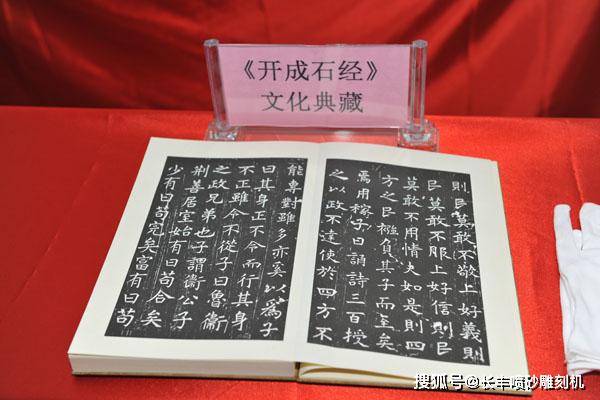 《开成石经》
文化典藏
則民莫敢不敬上好義則
民莫敢不服上好信則民
莫敢不用情夫如是則四
方之民襁負其子而至矣
焉用稼子曰誦詩三百授
之以政不達使於四方不
能專對雖多亦奚以爲子
曰其身正不令而行其身
不正雖令不從子曰魯衛
之政兄弟也子謂衛公子
荊善居室始有曰苟合矣
少有曰苟完矣富有曰苟
搜狐号@长丰喷砂雕刻机